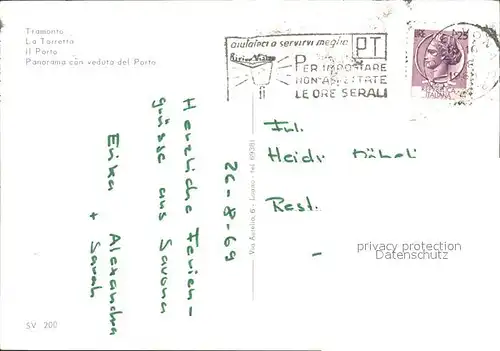 Tramonto
La Torretta
il Porto
Panorama con veduta del Porto
aiutateci a servirvi meglio
PT
PER IMPOSTARE
NON ASPETTATE
LE ORE SERALI
LIRE 25
26-8-69
Herzliche Ferien-
grüsse aus Savona
Erika Alexandra
+ Sarah
Frl.
Heidi
Rest.
Via Aurelia, 6 - Loano - tel. 69251
privacy protection
Datenschutz
SV 200